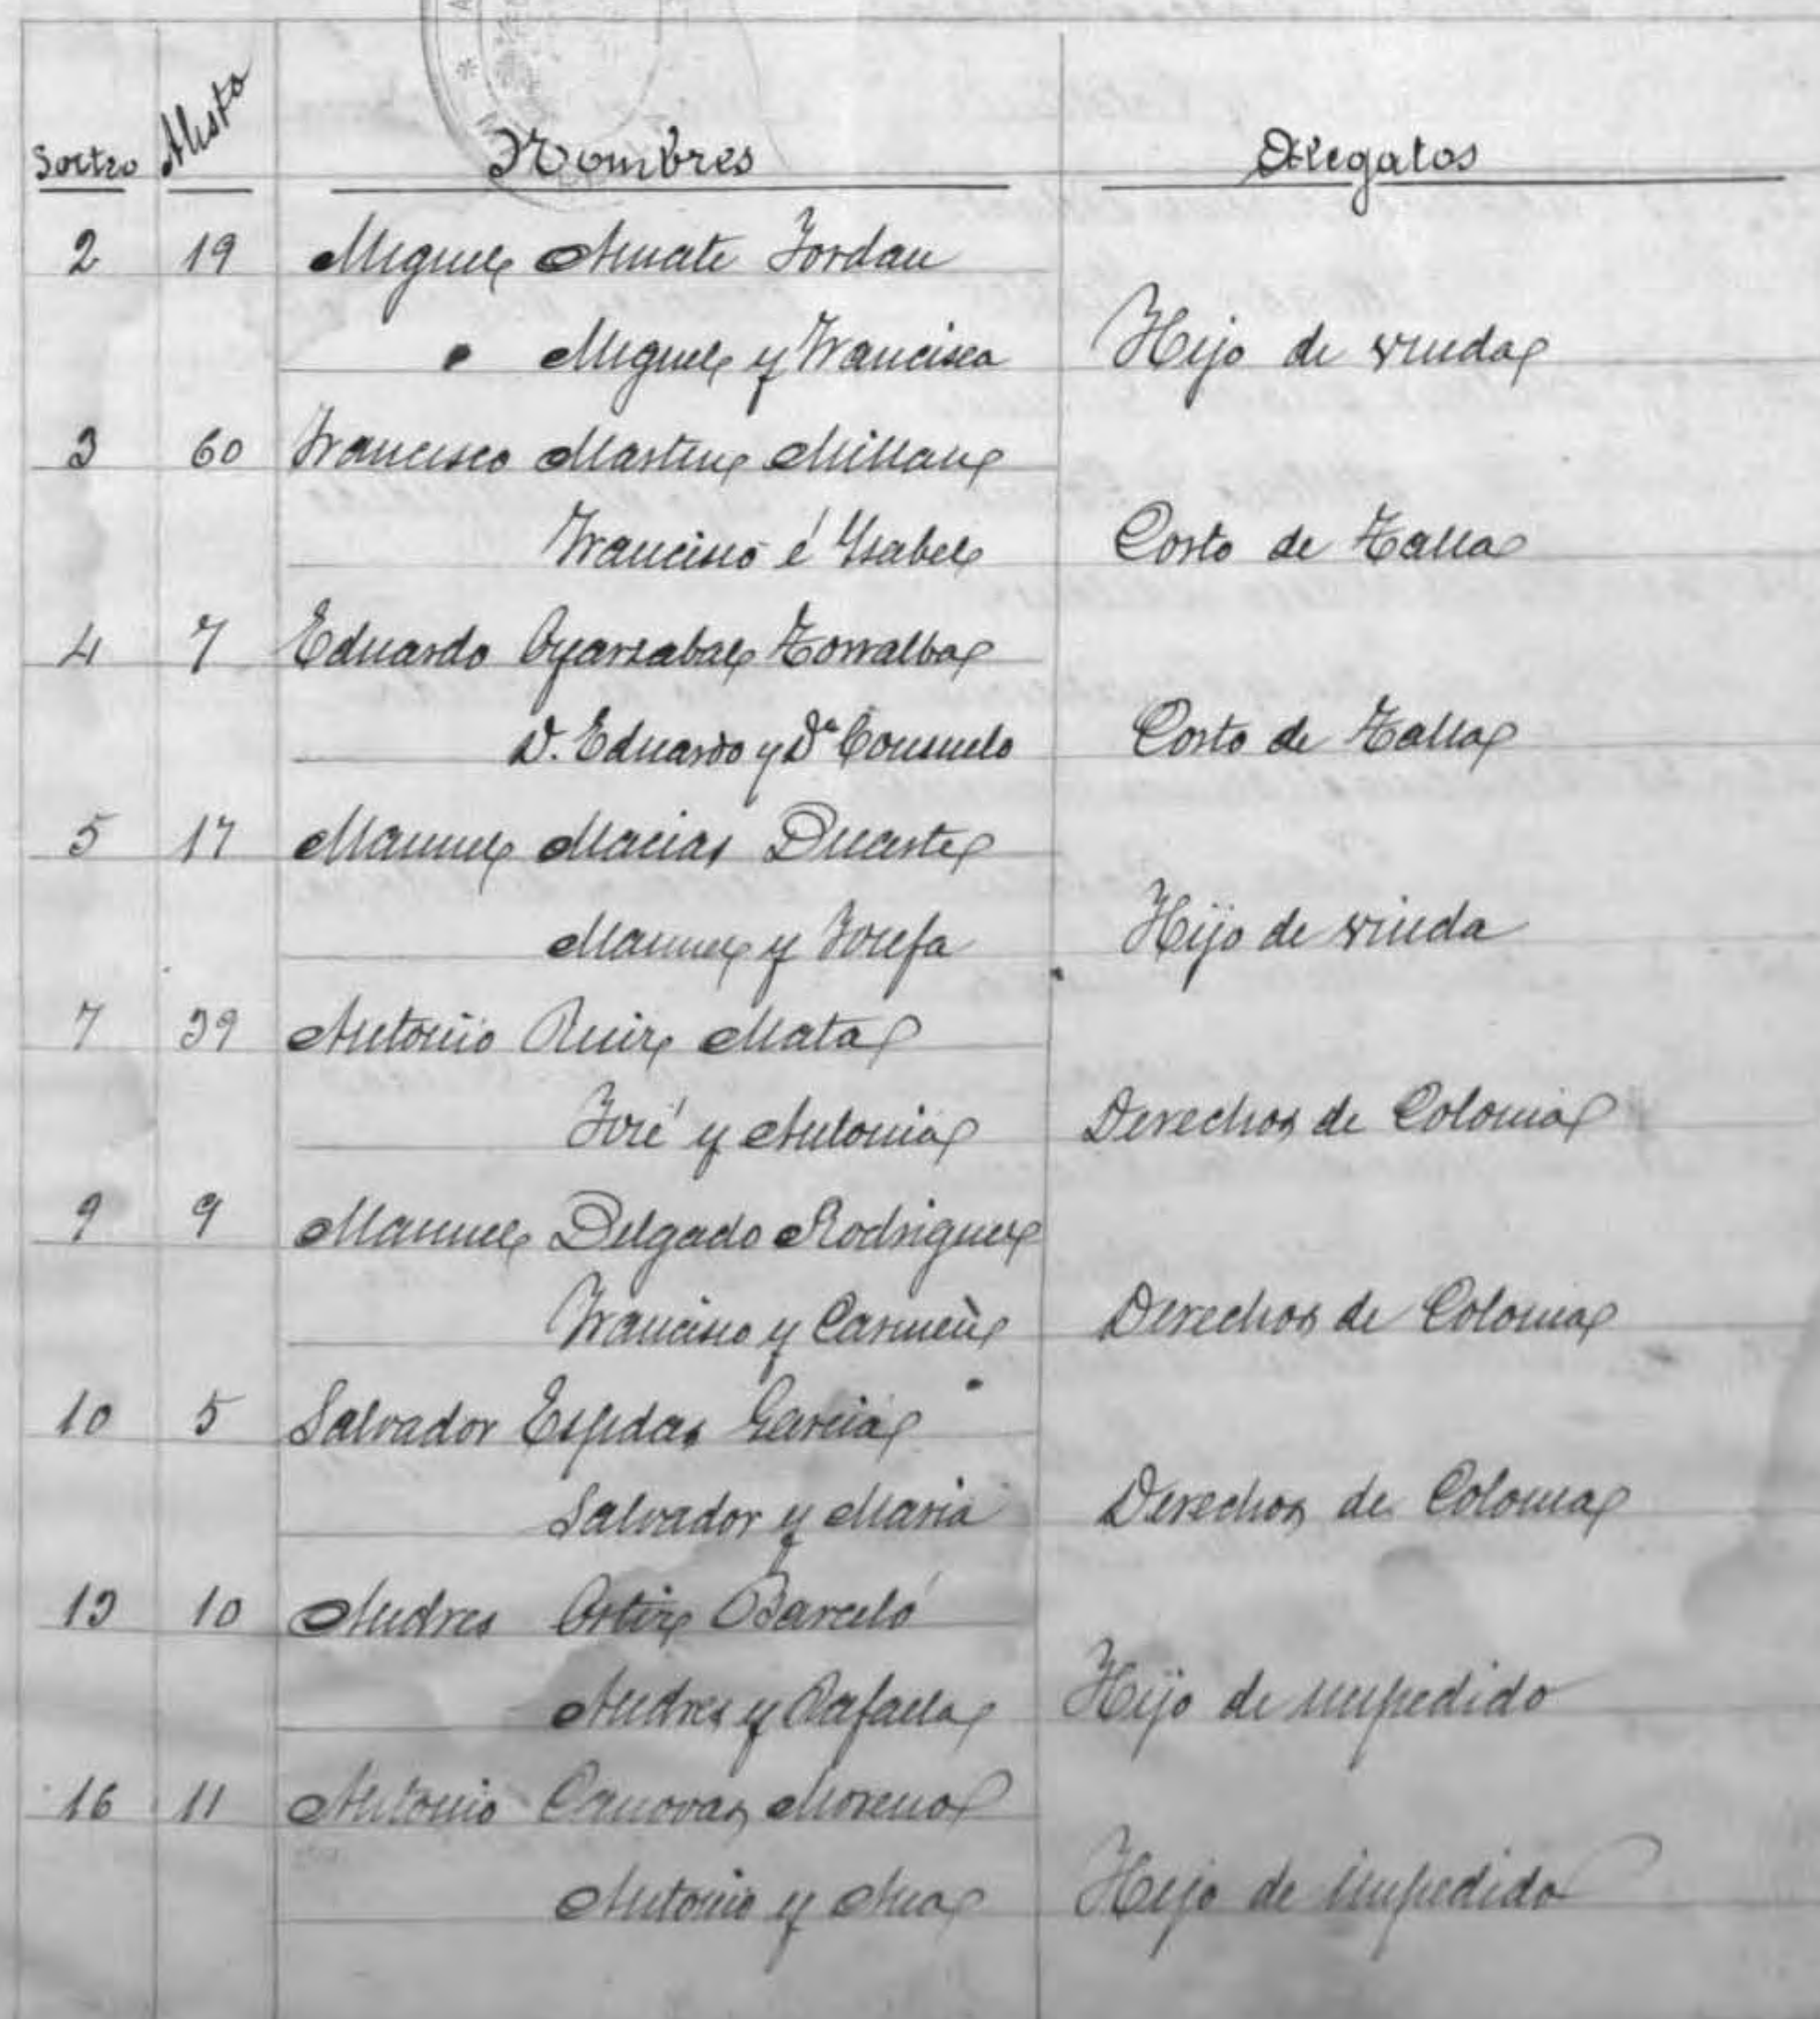 Sorteo Alisto Nombres Alegatos
2 19 Miguel Jordan
Miguel y Francisca Hijo de viuda
3 60 Francisco Martin Millan
Francisco é Ysabel Corto de Talla
4 7 Eduardo Oyarzabal Torralba
D. Eduardo y Dª Consuelo Corto de Talla
5 17 Manuel Macias Duarte
Manuel y Josefa Hijo de viuda
7 39 Antonio Ruiz Mata
José y Antonia Derechos de Colonia
9 9 Manuel Delgado Rodriguez
Francisco y Carmen Derechos de Colonia
10 5 Salvador Garcia
Salvador y Maria Derechos de Colonia
13 10 Andres Ortiz Barceló
Andres y Rafaela Hijo de impedido
16 11 Antonio Canovas Moreno
Antonio y Ana Hijo de impedido